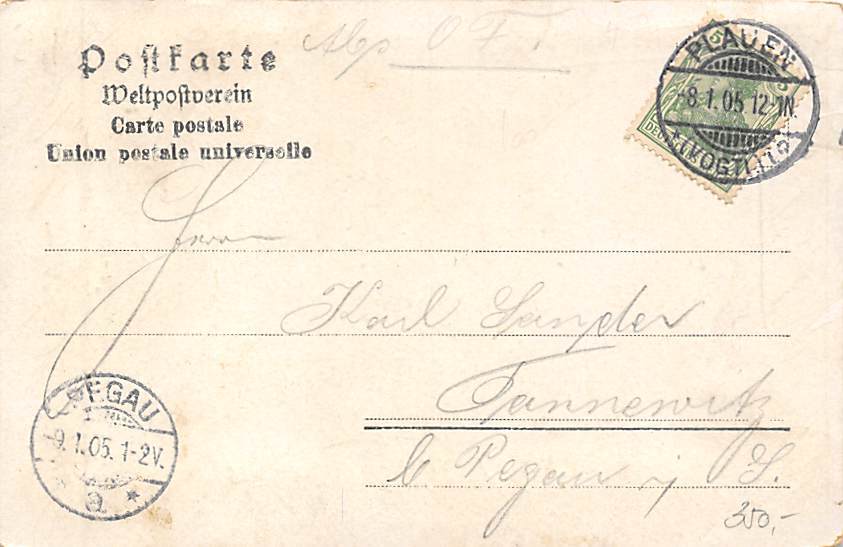 Postkarte
Weltpostverein
Carte postale
Union postale universelle
PLAUEN
8.1.05 12-1N.
*(VOGTL.)2*
Herrn
Karl Sander
Tannewitz
b Pegau i S.
PEGAU
9.1.05. 1-2V.
* a *
350,-